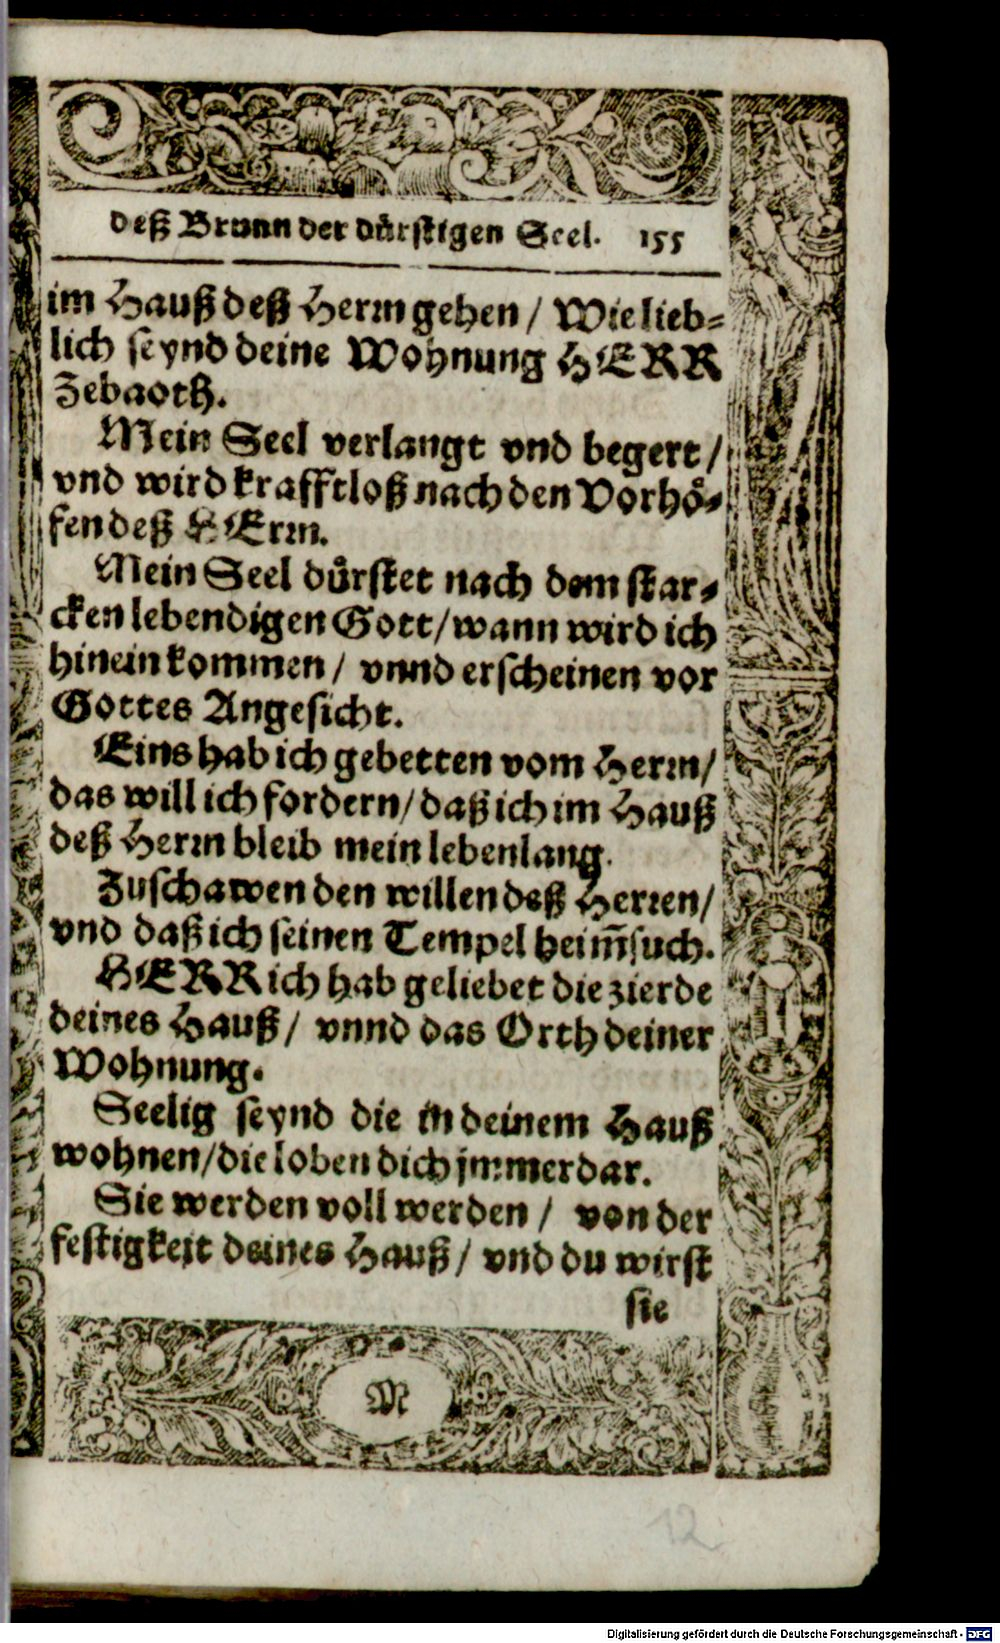 deß Brunn der dürstigen Seel. 155
im Hauß deß Herrn gehen / Wie lieb-
lich seynd deine Wohnung HERR
Zebaoth.
Mein Seel verlangt vnd begert /
vnd wird krafftloß nach den Vorhö-
fen deß HErrn.
Mein Seel dürstet nach dem star-
cken lebendigen Gott / wann wird ich
hinein kommen / vnnd erscheinen vor
Gottes Angesicht.
Eins hab ich gebetten vom Herrn /
das will ich fordern / daß ich im Hauß
deß Herrn bleib mein lebenlang.
Zuschawen den willen deß Herren /
vnd daß ich seinen Tempel heim̃such.
HERR ich hab geliebet die zierde
deines Hauß / vnnd das Orth deiner
Wohnung.
Seelig seynd die in deinem Hauß
wohnen / die loben dich jmmerdar.
Sie werden voll werden / von der
festigkeit deines Hauß / vnd du wirst
sie
M
12
Digitalisierung gefördert durch die Deutsche Forschungsgemeinschaft - DFG